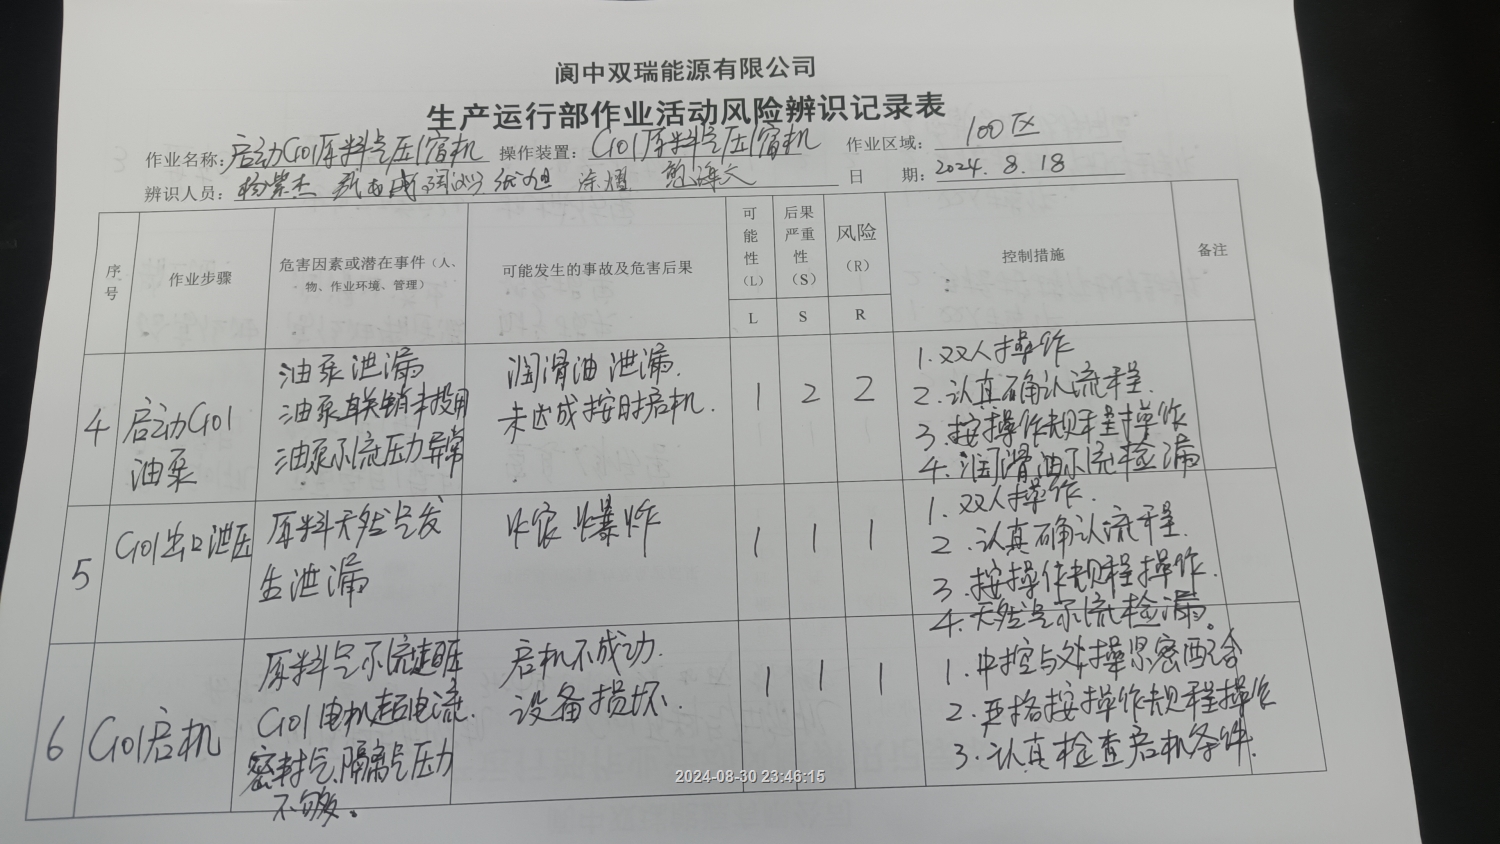 阆中双瑞能源有限公司
生产运行部作业活动风险辨识记录表
作业名称: 启动G01原料气压缩机 操作装置: G01原料气压缩机 作业区域: 100区
辨识人员: 日 期: 2024.8.18
序号 作业步骤 危害因素或潜在事件（人、物、作业环境、管理） 可能发生的事故及危害后果 可能性（L） 后果严重性（S） 风险（R） 控制措施 备注
L S R
4 启动G01油泵
油泵泄漏
油泵联锁未投用
油泵系统压力异常
润滑油泄漏.
未达成按时启机.
1 2 2
1.双人操作
2.认真确认流程.
3.按操作规程操作
4.润滑油系统检漏
5 G01出口泄压
原料天然气发
生泄漏
火灾.爆炸
1 1 1
1.双人操作.
2.认真确认流程.
3.按操作规程操作.
4.天然气系统检漏。
6 G01启机
原料气系统超压
G01电机超电流.
密封气、隔离气压力
不够。
启机不成功.
设备损坏.
1 1 1
1.中控与外操紧密配合
2.严格按操作规程操作
3.认真检查启机条件.
2024-08-30 23:46:15